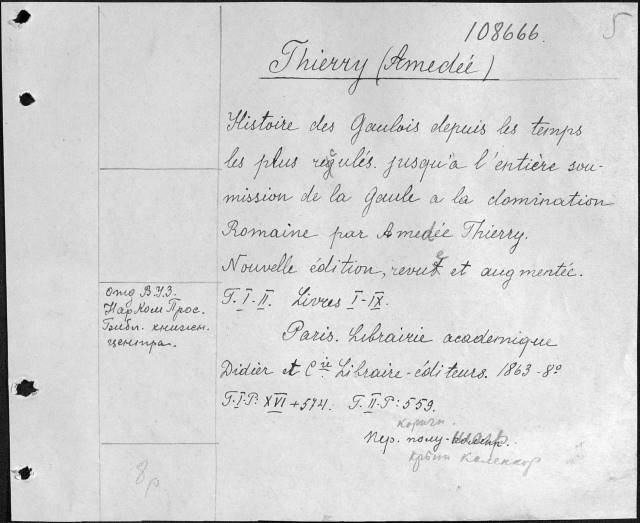 108666. 5
Thierry (Amedéé)
Histoire des Gaulois depuis les temps
les plus regulés. jusqu'à l'entière sou-
mission de la Gaule a la domination
Romaine par Amedée Thierry.
Nouvelle édition, revue et augmentée.
T. I-II. Livres I-IX.
Отд В.У.З.
Нар Ком Прос.
Библ. книжн.
центра.
Paris. Librairie academique
Didier et Cie Libraire-éditeurs. 1863-8º
T.I-P: XVI+574. T. II-P: 559.
коричн.
пер. полу-
крыт коленкор
8 р